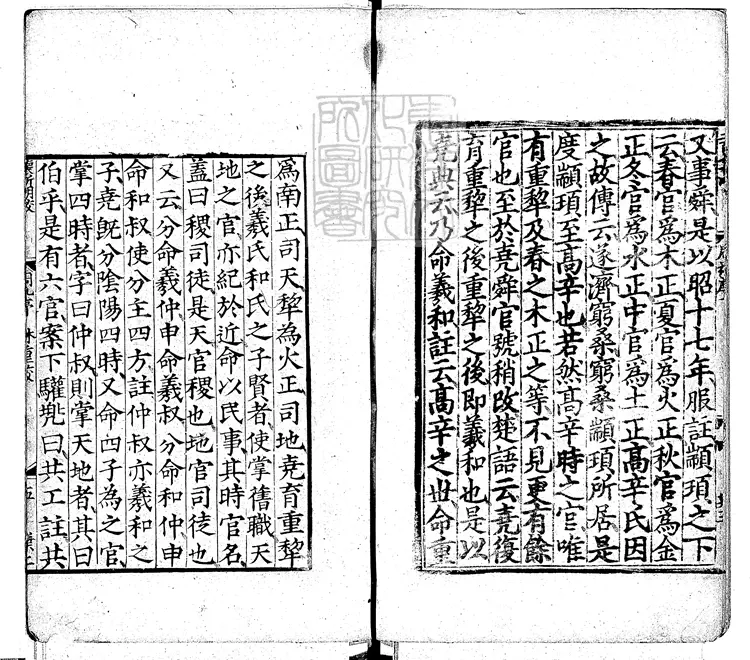 又事舜是以昭十七年服註顓頊之下
云春官爲木正夏官爲火正秋官爲金
正冬官爲水正中官爲土正高辛氏因
之故傳云遂濟窮桑窮桑顓頊所居是
度顓頊至高辛也若然高辛時之官唯
有重犂及春之木正之等不見更有餘
官也至於堯舜官號稍改楚語云堯復
育重犂之後重犂之後即羲和也是以
堯典云乃命羲和註云高辛之世命重
爲南正司天犂為火正司地堯育重犂
之後羲氏和氏之子賢者使掌舊職天
地之官亦紀於近命以民事其時官名
蓋曰稷司徒是天官稷也地官司徒也
又云分命羲仲申命羲叔分命和仲申
命和叔使分主四方註仲叔亦羲和之
子堯旣分陰陽四時又命四子為之官
掌四時者字曰仲叔則掌天地者其曰
伯乎是有六官案下驩兠曰共工註共